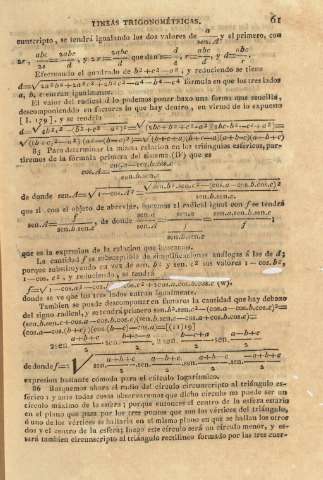 LINEAS TRIGONOMÉTRICAS. 61
cunscripto, se tendrá igualando los dos valores de a/sen.A, y el primero, con
2r, abc/2s = a/d, y 2r = 2abc/d, que dan
Efectuando el quadrado de b²+c²−a², y reduciendo se tiene
d=√2a²b²+2a²c²+2b²c²−a⁴−b⁴−c⁴ fórmula en que los tres lados
a, b, c entran igualmente.
El valor del radical d lo podemos poner baxo una forma mas sencilla,
descomponiendo en factores lo que hay dentro, en virtud de lo expuesto
[I. 179], y se tendrá
d=√4b²c²−(b²+c²−a²)²=√(2bc+b²+c²−a²)(2bc−b²−c²+a²)=
√((b+c)²−a²)(a²−(b−c)²)=√(b+c+a)(b+c−a)(a+b−c)(a−b+c)
85 Para determinar la misma relacion en los triángulos esféricos, par-
tiremos de la fórmula primera del sistema (D) que es
cos.A= cos.a−cos.b.cos.c / sen.b.sen.c
de donde sen.A=√1−cos.A²= √sen.b².sen.c²−(cos.a−cos.b.cos.c)² / sen.b.sen.c
que si con el objeto de abreviar, hacemos al radical igual con f se tendrá
sen.A= f / sen.b.sen.c, de donde
que es la expresion de la relacion que buscamos.
La cantidad f es susceptible de simplificaciones análogas á las de d;
porque substituyendo en vez de sen. b² y sen. c² sus valores 1−cos.b²,
1−cos.c², y reduciendo, se tendrá
f=√1−cos.a²− cos.c²+2cos.a.cos.b.cos.c (w).
donde se ve que los tres lados entran igualmente.
Tambien se puede descomponer en factores la cantidad que hay debaxo
del signo radical, y se tendrá primero sen.b².sen.c²−(cos.a−cos.b.cos.c)²=
(sen.b.sen.c+cos.a−cos.b.cos.c)(sen.b.sen.c−cos.a+cos.b.cos.c)=
(cos.a−cos.(b+c))(cos.(b−c)−cos.a)=[(11)19]
2sen. a+b+c/2 sen. b+c−a/2 . 2 sen. a+b−c/2 sen.
de donde f=2√sen. a+b+c/2 .sen. a+b−c/2 .sen. a−b+c/2 .sen. −a+b+c/2
expresion bastante cómoda para el cálculo logarítmico.
86 Busquemos ahora el radio del círculo circunscripto al triángulo es-
férico; y ante todas cosas observaremos que dicho círculo no puede ser un
círculo máximo de la esfera; porque entonces el centro de la esfera estaria
en el plano que pasa por los tres puntos que son los vértices del triángulo,
ó uno de los vértices se hallaria en el mismo plano en que se hallan los otros
dos y el centro de la esfera; luego este círculo será un círculo menor, y es-
tará tambien circunscripto al triángulo rectilíneo formado por las tres cuer-